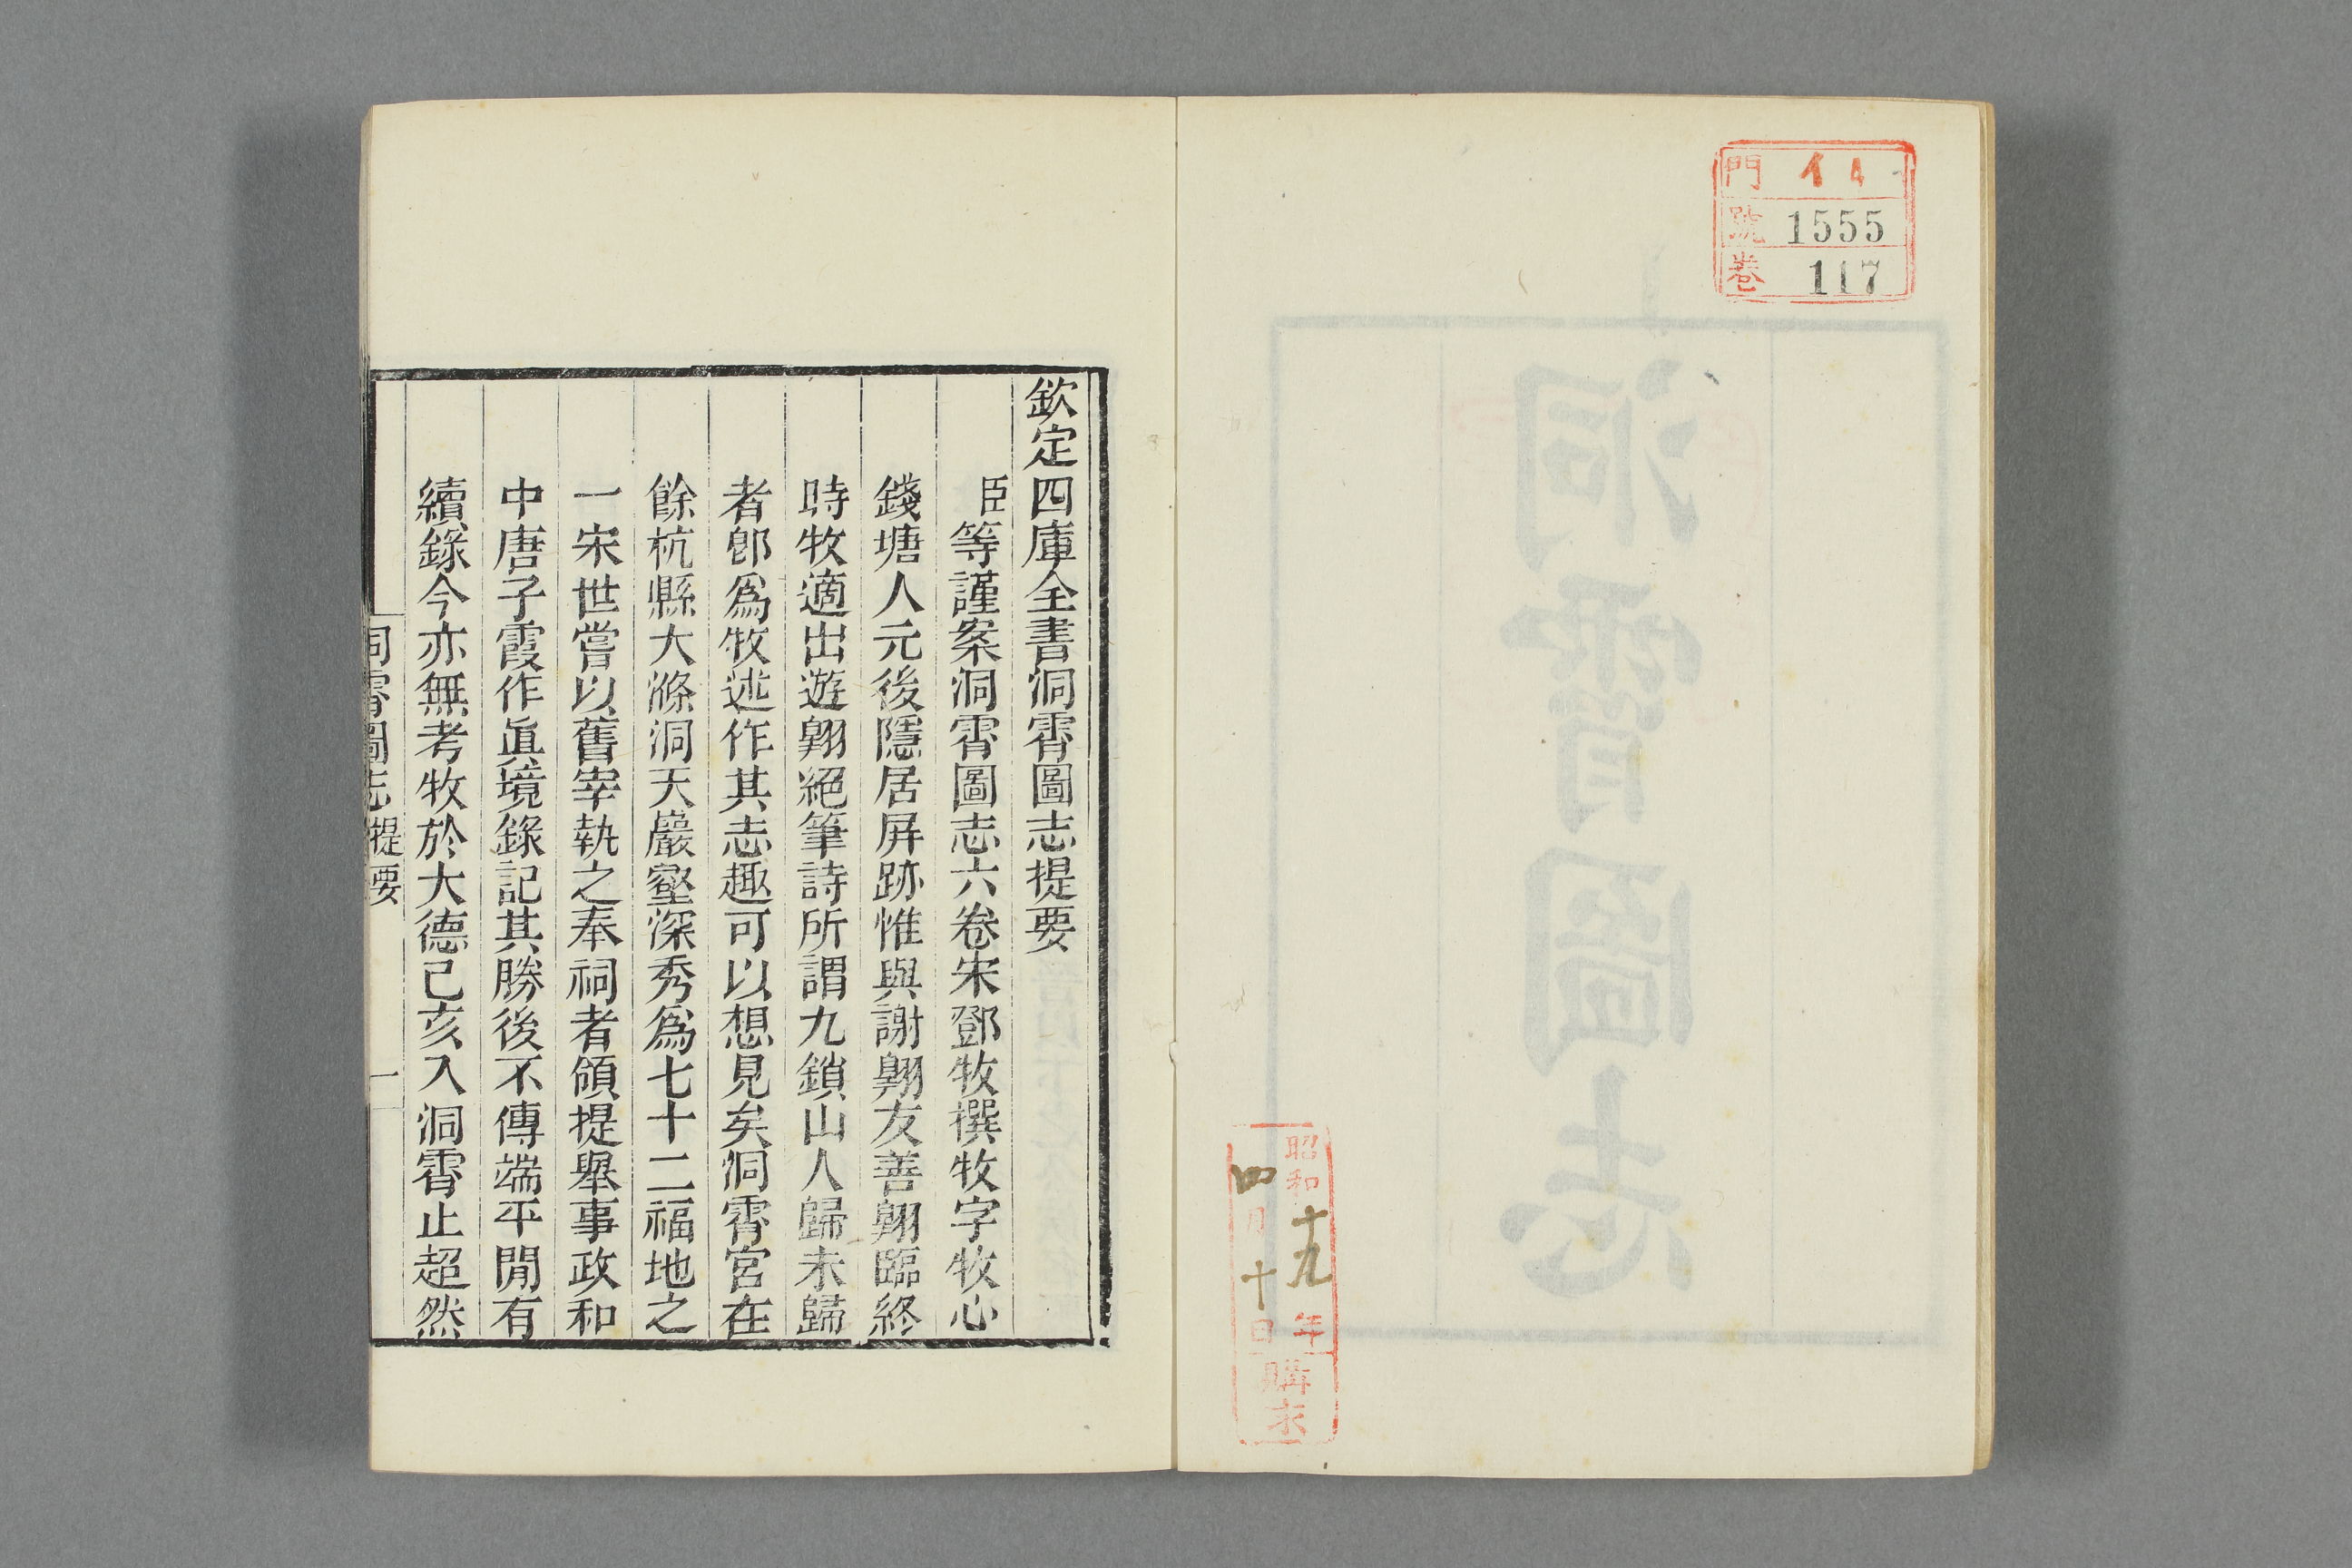 門 イ4
號 1555
卷 117
洞霄圖志
昭和十九年
四月十日
購求
欽定四庫全書洞霄圖志提要
臣等謹案洞霄圖志六卷宋鄧牧撰牧字牧心
錢塘人元後隱居屏跡惟與謝翺友善翺臨終
時牧適出遊翺絕筆詩所謂九鎖山人歸未歸
者卽爲牧述作其志趣可以想見矣洞霄宮在
餘杭縣大滌洞天巖壑深秀爲七十二福地之
一宋世嘗以舊宰執之奉祠者領提舉事政和
中唐子霞作眞境錄記其勝後不傳端平閒有
續錄今亦無考牧於大德己亥入洞霄止超然
洞霄圖志提要 一